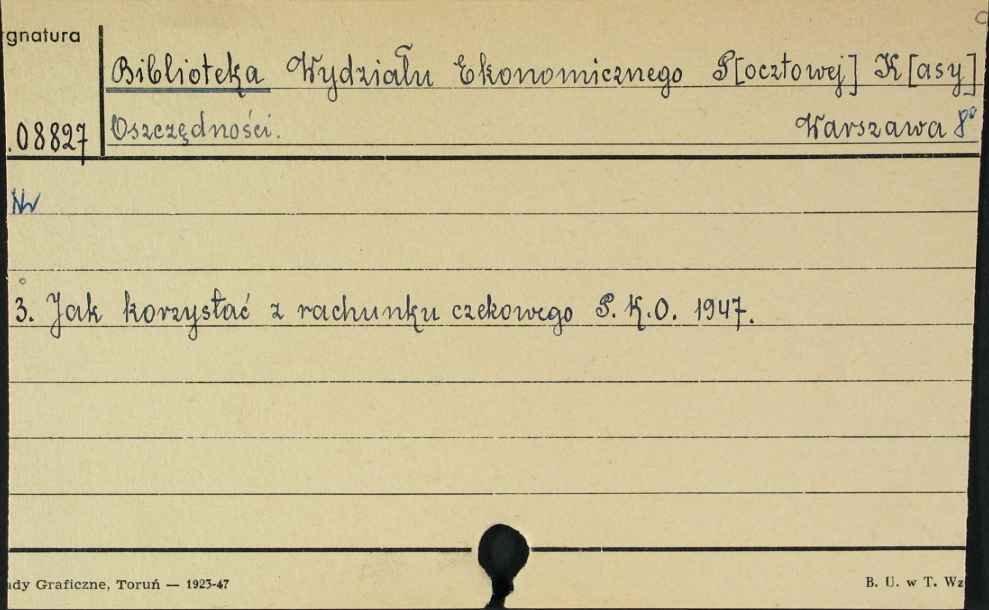 gnatura
Biblioteka Wydziału Ekonomicznego P[ocztowej] K[asy]
.08827 Oszczędności. Warszawa 8°
Nr
3. Jak korzystać z rachunku czekowego P.K.O. 1947.
ady Graficzne, Toruń — 1923-47 B. U. w T. Wz